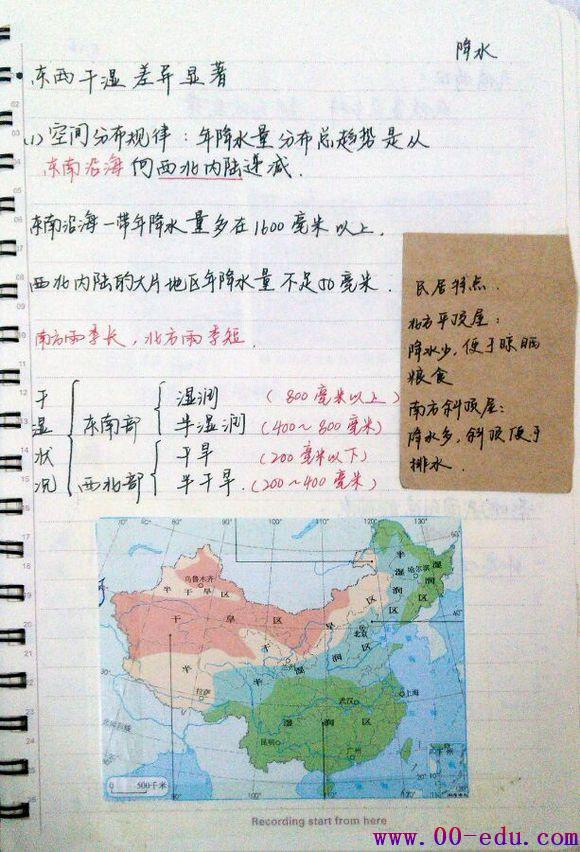 降水
东西干湿差异显著
(1)空间分布规律：年降水量分布总趋势是从
东南沿海向西北内陆递减.
东南沿海一带年降水量多在1600毫米以上.
西北内陆的大片地区年降水量不足50毫米.
南方雨季长，北方雨季短.
干湿状况
东南部
湿润 (800毫米以上)
半湿润 (400~800毫米)
西北部
干旱 (200毫米以下)
半干旱.(200~400毫米)
民居特点.
北方平顶屋：
降水少，便于晾晒
粮食
南方斜顶屋：
降水多，斜顶便于
排水.
70° 80° 90° 100° 110° 120° 130°
乌鲁木齐
半干旱区
干旱区
半干旱区
半湿润区
哈尔滨
北京
40°
兰州
半湿润区
拉萨
湿润区
武汉
上海
昆明
广州
0 500千米
80° 90° 100° 110° 120°
Recording start from here
www.00-edu.com